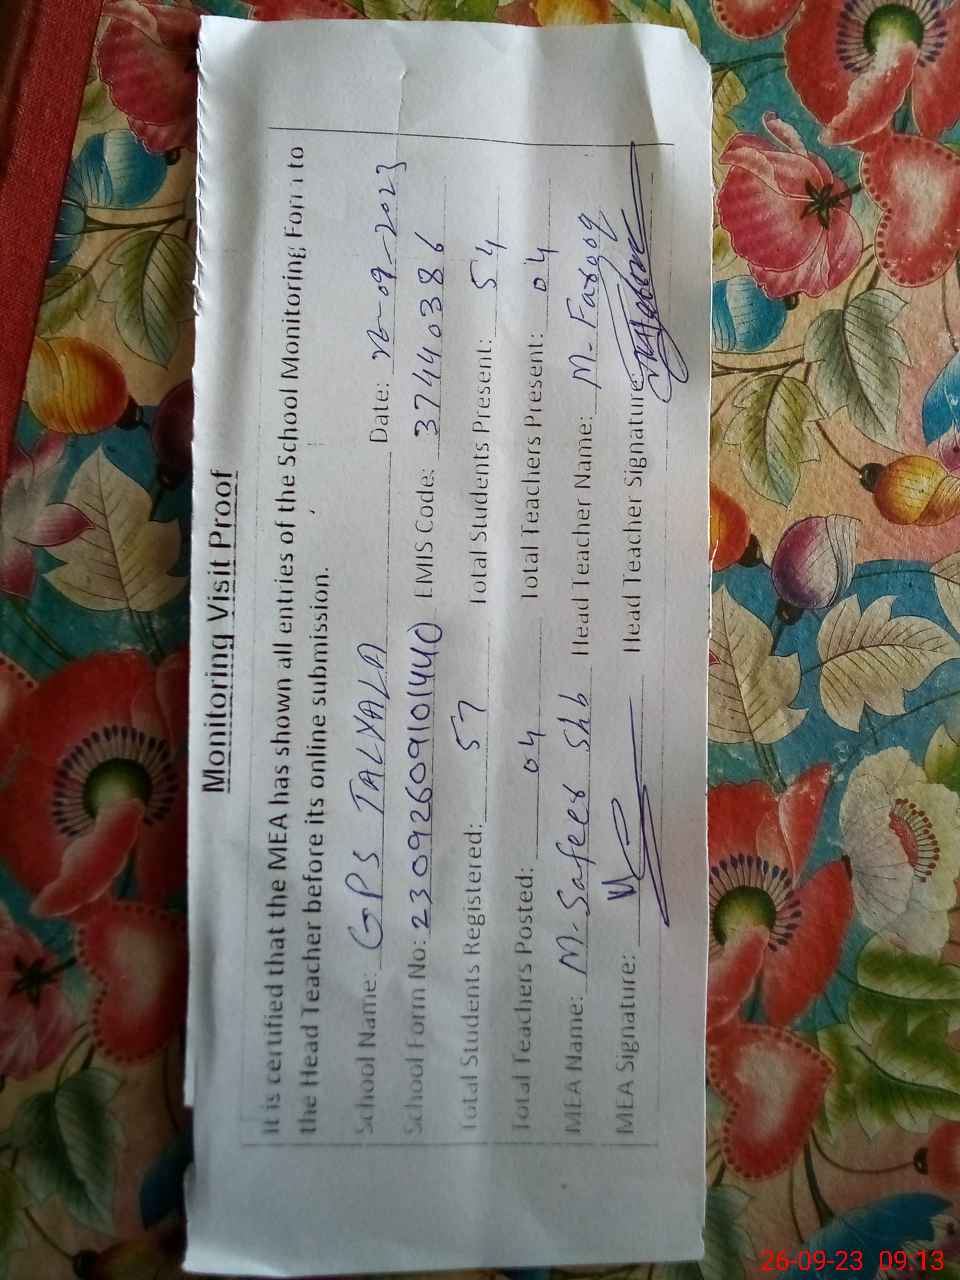 Monitoring Visit Proof
It is certified that the MEA has shown all entries of the School Monitoring Form to
the Head Teacher before its online submission.
School Name: GPS TALYALA Date: 26-09-2023
School Form No: 23092609101440 EMIS Code: 37440386
Total Students Registered: 57 Total Students Present: 54
Total Teachers Posted: 04 Total Teachers Present: 04
MEA Name: M-Safeer Shb Head Teacher Name: M-Farooq
MEA Signature: Head Teacher Signature:
26-09-23 09:13